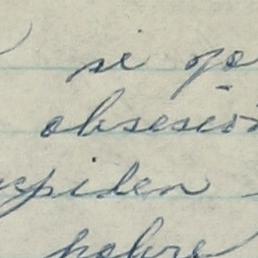 si yo
obsesión
piden
pobre